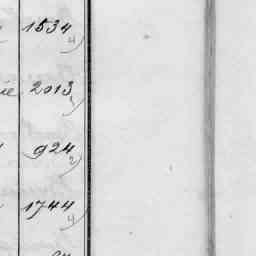 1534
4)
ie 2013
1)
924
2)
1744
4)